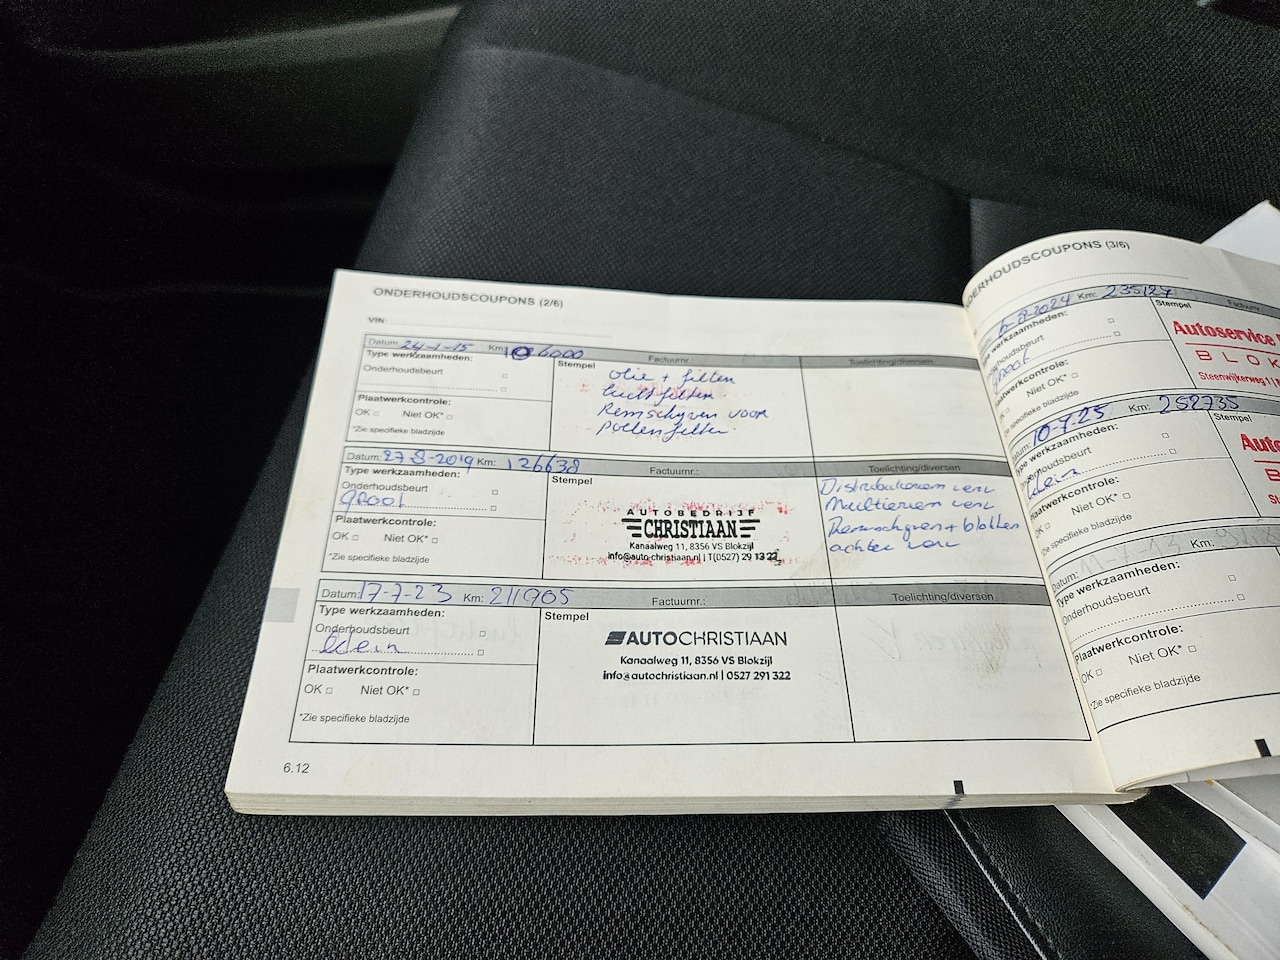 ONDERHOUDSCOUPONS (2/6)
VIN:
Datum: 24-1-15 Km: 106000 Factuurnr.: Toelichting/diversen
Type werkzaamheden:
Onderhoudsbeurt
Plaatwerkcontrole:
OK Niet OK*
*Zie specifieke bladzijde
Stempel
olie + filter
luchtfilter
Remschijven voor
pollenfilter
Datum: 27-8-2019 Km: 126638 Factuurnr.: Toelichting/diversen
Type werkzaamheden:
Onderhoudsbeurt
groot
Plaatwerkcontrole:
OK Niet OK*
*Zie specifieke bladzijde
Stempel
AUTOBEDRIJF
CHRISTIAAN
Kanaalweg 11, 8356 VS Blokzijl
info@auto-christiaan.nl | T(0527) 29 13 22
Distributieriem verv
Multiriem verv
Remschijven + blokken
achter verv
Datum: 17-7-23 Km: 211905 Factuurnr.: Toelichting/diversen
Type werkzaamheden:
Onderhoudsbeurt
klein
Plaatwerkcontrole:
OK Niet OK*
*Zie specifieke bladzijde
Stempel
AUTOCHRISTIAAN
Kanaalweg 11, 8356 VS Blokzijl
info@autochristiaan.nl | 0527 291 322
6.12
ONDERHOUDSCOUPONS (3/6)
Datum: 6-8-2024 Km: 235127 Factuurnr.
Type werkzaamheden:
Onderhoudsbeurt
groot
Plaatwerkcontrole:
OK Niet OK*
*Zie specifieke bladzijde
Stempel
Autoservice
BLOK
Steenwijkerweg 1
Datum: 10-7-25 Km: 252735
Type werkzaamheden:
Onderhoudsbeurt
klein
Plaatwerkcontrole:
OK Niet OK*
*Zie specifieke bladzijde
Stempel
Auto
BL
Datum: Km:
Type werkzaamheden:
Onderhoudsbeurt
Plaatwerkcontrole:
OK Niet OK*
*Zie specifieke bladzijde